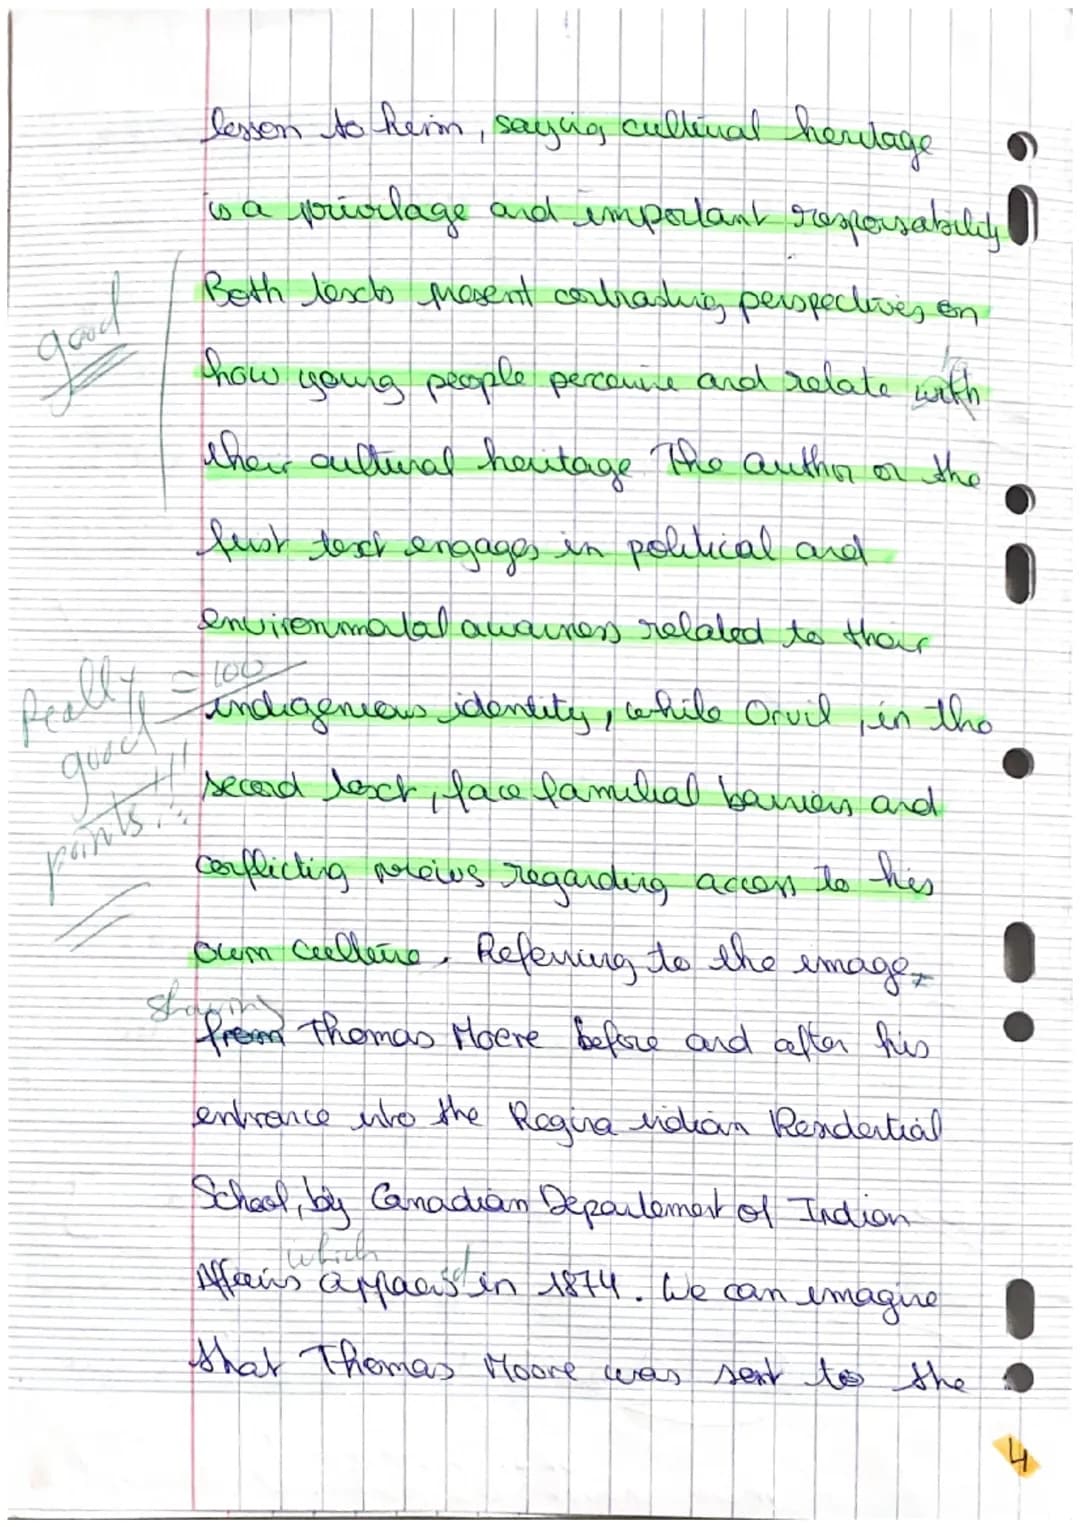 lesson to heim, saying cultural heritage
is a privilage and important responsability
Both texts present contrasting perspectives on
good
how young people perceive and relate with
to
their cultural heritage. The author or the
first text engages in political and
environmatal awairness related to their
Really = 100
good
points!!!
indiagenieous identity, while Orvil, in the
second text, face familial barriers and
conflicting vieiws regarding access to his
own culture. Referring to the image,
showing
from Thomas Moere before and after his
entrance into the Regina indian Residential
School, by Canadian Departement of Indian
which
Affairs appears in 1874. We can imagine
that Thomas Moore was sent to the
4